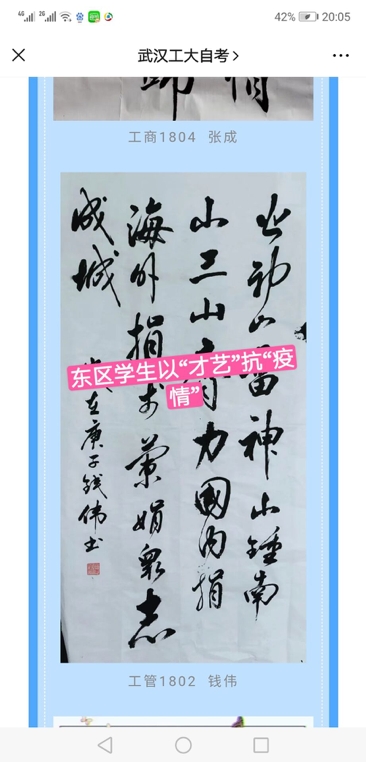 4G 2G 42% 20:05
武汉工大自考
工商1804 张成
火神山雷神山鍾南
山三山有力國内捐
海外捐 眾志
成城
岁在庚子钱伟书
东区学生以“才艺”抗“疫
情”
工管1802 钱伟